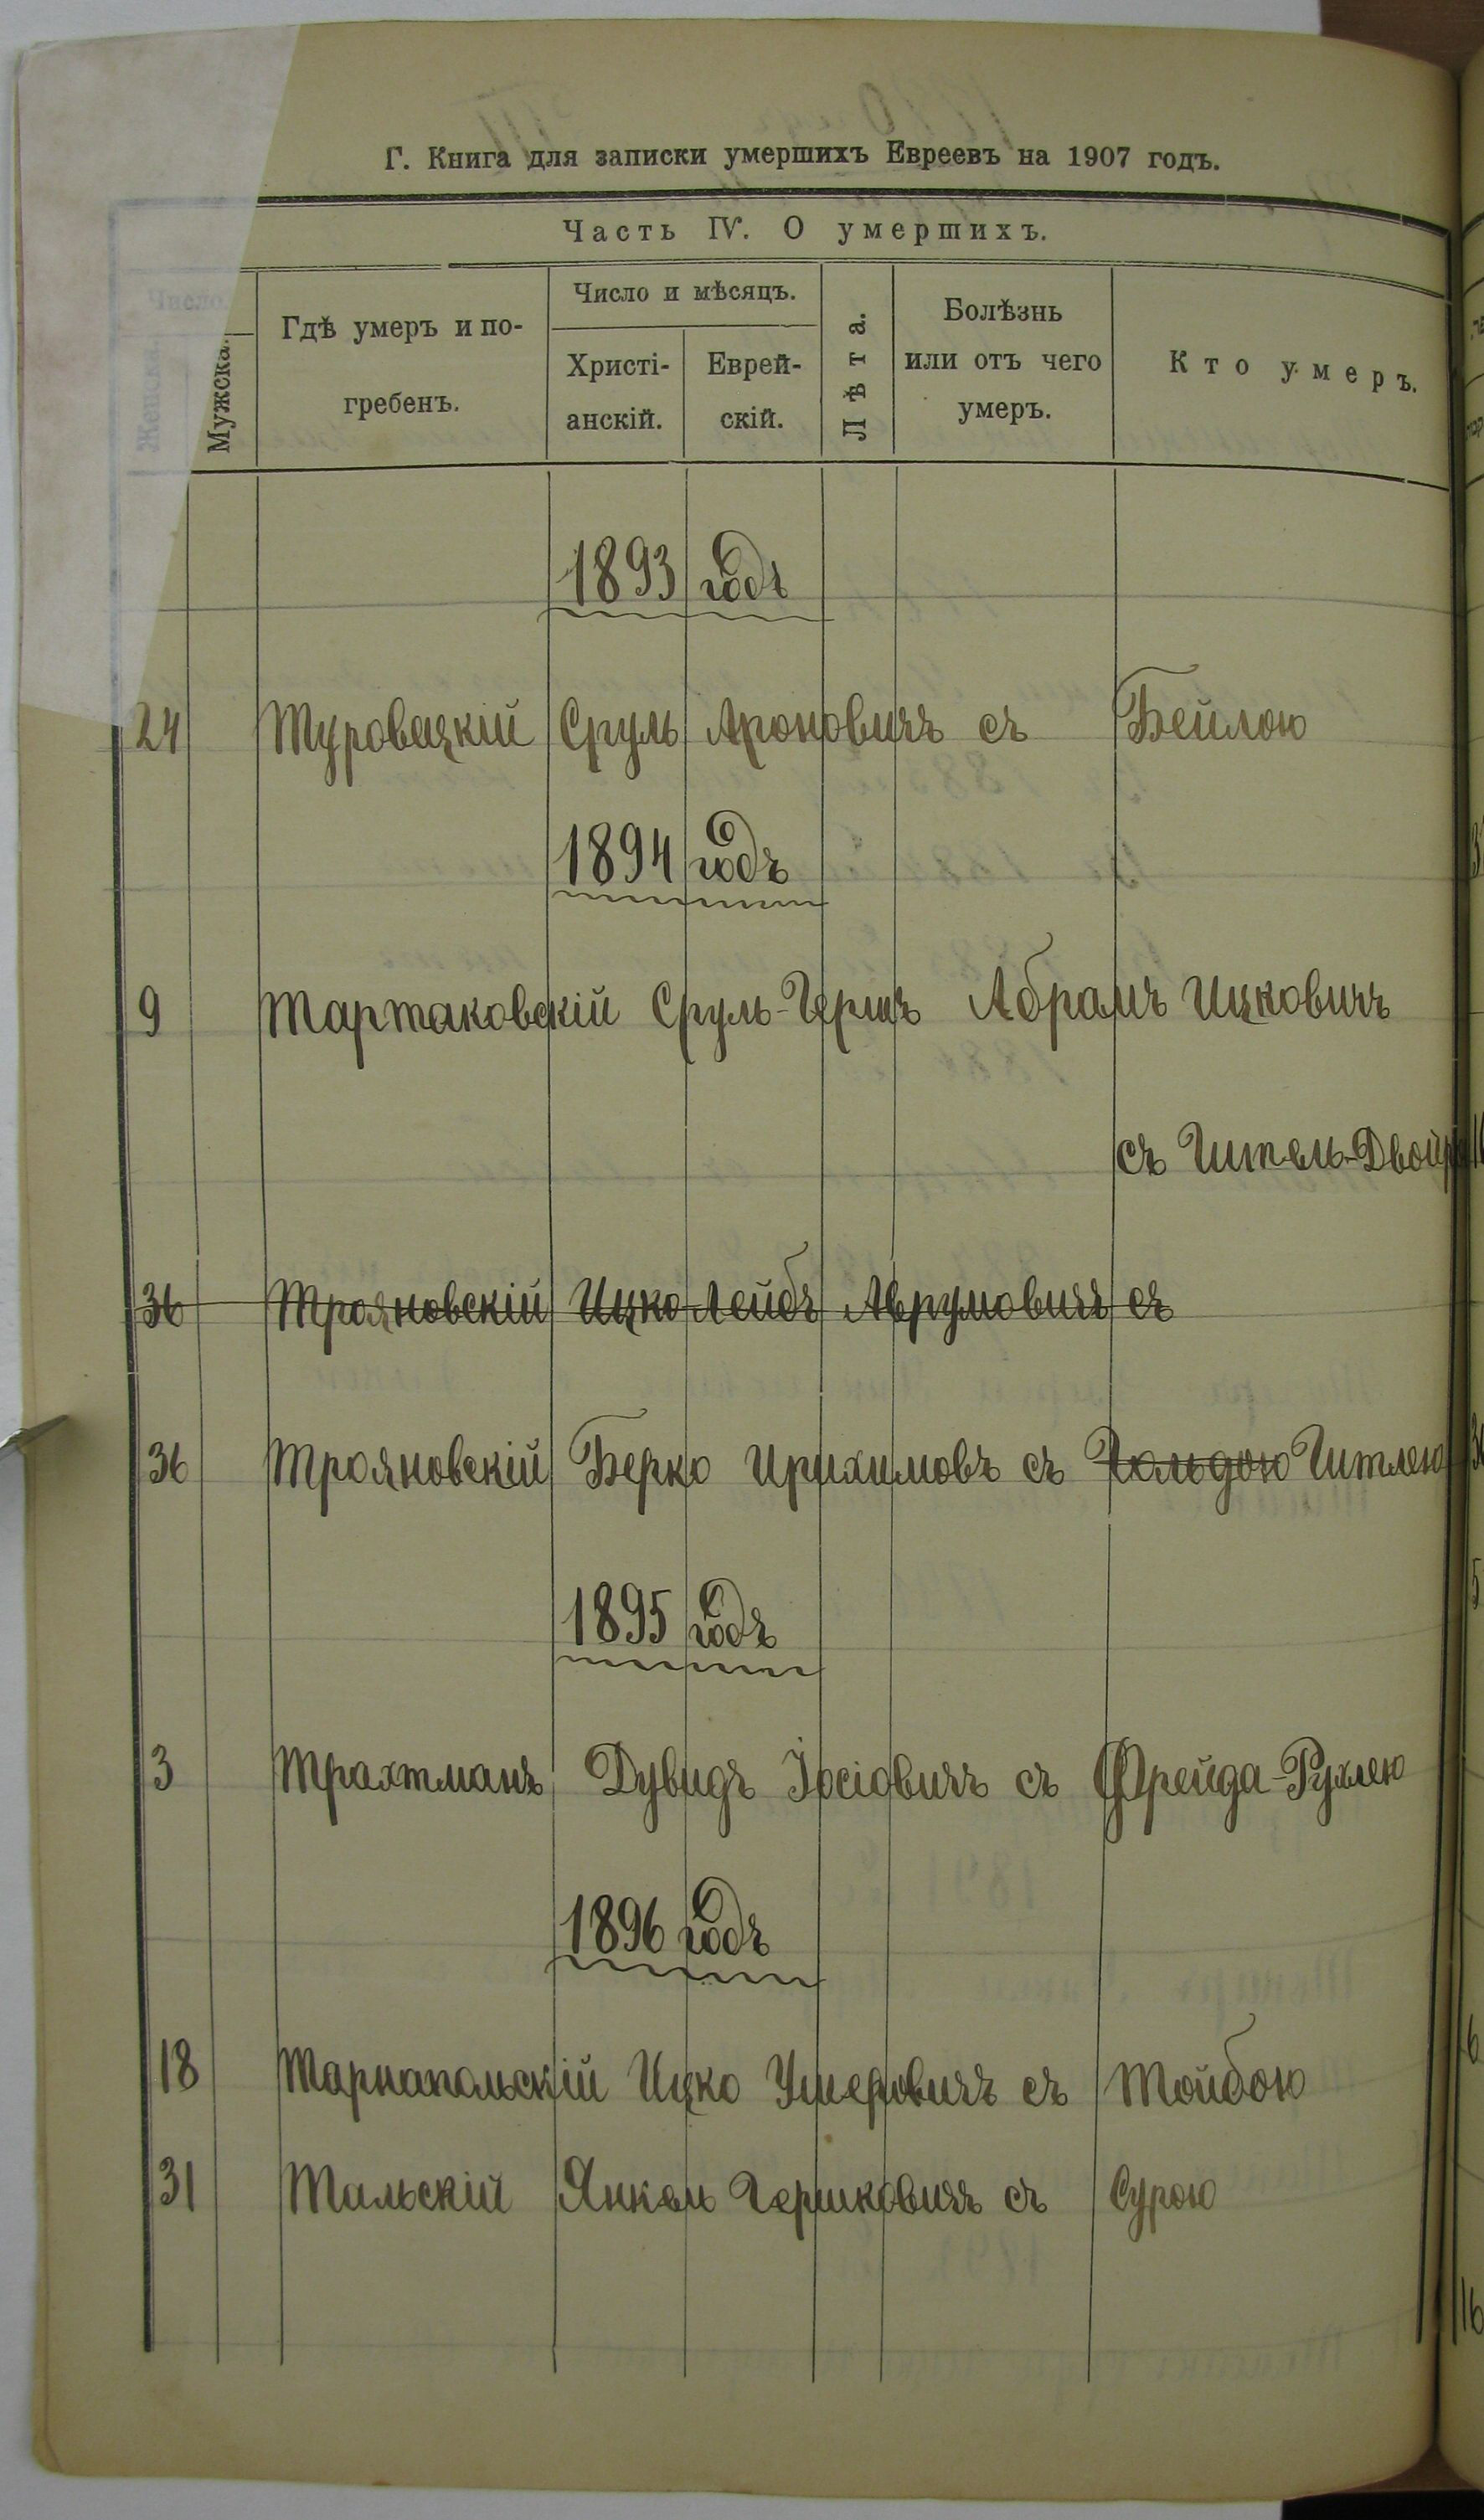 Г. Книга для записки умершихъ Евреевъ на 1907 годъ.
Часть IV. О умершихъ.
Число.
Женска.
Мужска.
Гдѣ умеръ и по-
гребенъ.
Число и мѣсяцъ.
Христі-
анскій.
Еврей-
скій.
Лѣта.
Болѣзнь
или отъ чего
умеръ.
Кто умеръ.
1893 годъ
24 Туровецкій Сруль Ароновичъ съ Бейлою
1894 годъ
9 Тартаковскій Сруль-Гершъ Абрамъ Ицковичъ
съ Гитель-Двойр
36 Трояновскій Ицко Лейбъ Аврумовичъ съ
36 Трояновскій Берко Ирихимовъ съ Гольдою Гитлею
1895 годъ
3 Трахтманъ Дувидъ Іосіовичъ съ Фрейда-Рухлею
1896 годъ
18 Тарнапольскій Ицко Ушеровичъ съ Тойбою
31 Тальскій Янкель Гершковичъ съ Сурою